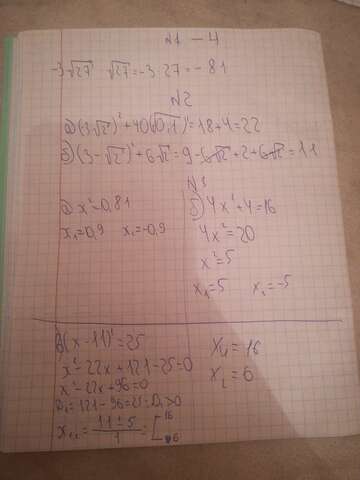 N1 – 4
-3√27 · √27 = -3·27 = -81
N2
а) (3√2)² + 40(√0,1)² = 18 + 4 = 22
б) (3-√2)² + 6√2 = 9 - 6√2 + 2 + 6√2 = 11
N3
а) x² = 0,81
x₁ = 0,9 x₂ = -0,9
б) 4x² + 4 = 16
4x² = 20
x² = 5
x₁ = 5 x₂ = -5
в) (x - 11)² = 25
x² - 22x + 121 - 25 = 0
x² - 22x + 96 = 0
D₁ = 121 - 96 = 25; D₁ > 0
x₁,₂ = (11 ± 5)/1 = [16 6
x₁ = 16
x₂ = 6